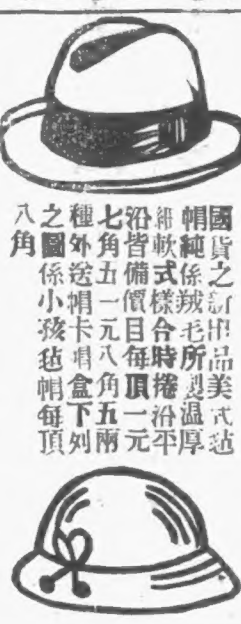 國貨之新出品美式毡
帽純係羢毛所製温厚
細軟式樣合時捲沿平
沿皆備價目每頂一元
七角五一元八角五兩
種外送帽卡帽盒下列
之圖係小孩毡帽每頂
八角